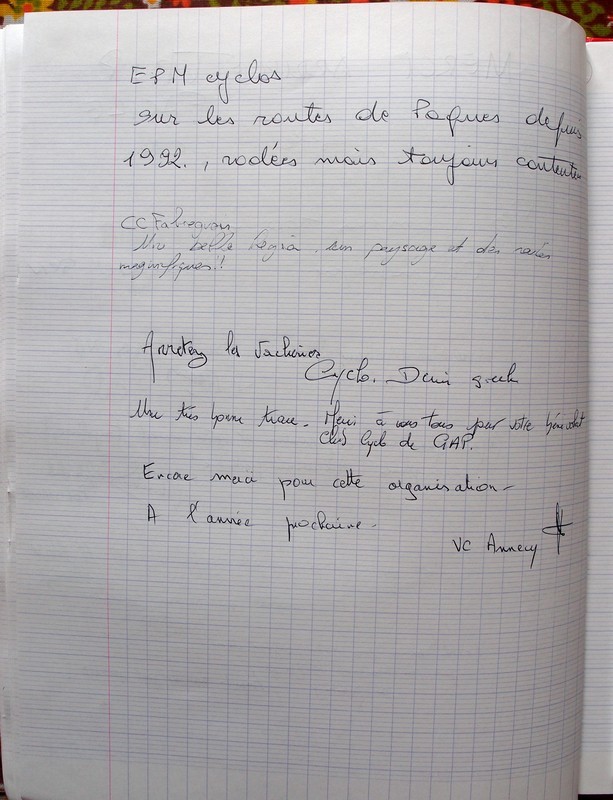 EPM cyclos
sur les routes de Paques depuis
1992., rodées mais toujours contentes
CC Fabregues
Une belle région, un paysage et des
magnifiques!!
Arretez les
Cyclo.
Une très bonne trace. Merci à vous tous pour votre bénévolat
Club Cyclo de GAP.
Encore merci pour cette organisation-
A l'année prochaine-
VC Annecy